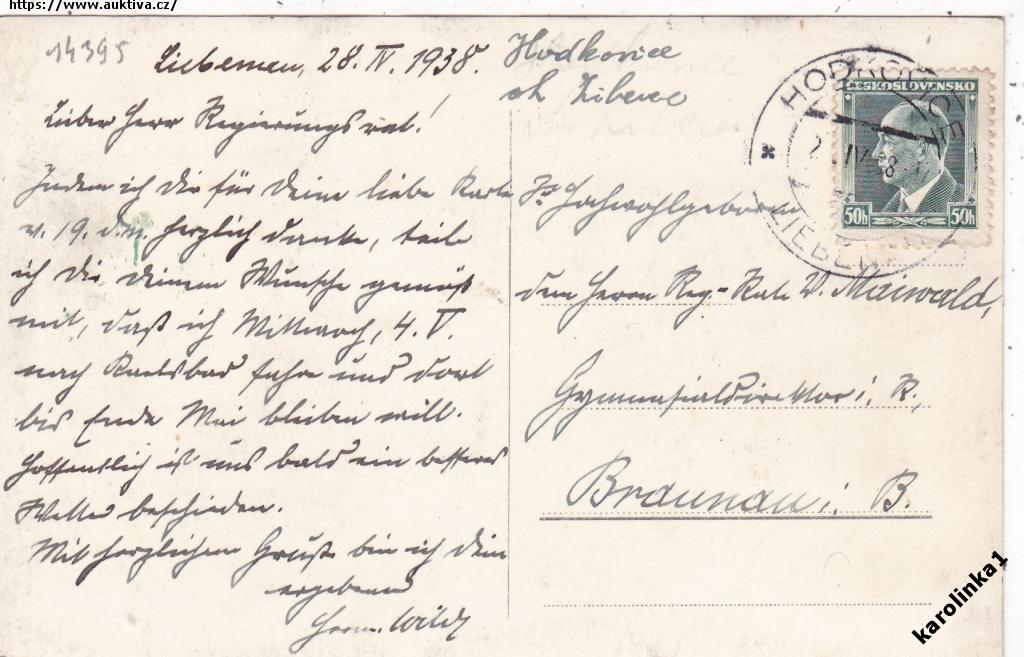 https://www.auktiva.cz/
14395
Liebenau, 28. IV. 1938.
Lieber Herr Regierungsrat!
Indem ich Dir für Deine liebe Karte
v. 19. d. M. herzlich danke, teile
ich Dir, Deinem Wunsche gemäß
mit, daß ich Mittwoch, 4. V.
nach Karlsbad fahre und dort
bis Ende Mai bleiben will.
Hoffentlich ist uns bald ein besseres
Wetter beschieden.
Mit herzlichem Gruß bin ich Dein
ergebener
Herm. Wildt
Hodkovice
Liberec
HODKOVICE
LIEBENAU
IV 38
ČESKOSLOVENSKO
50h 50h
Hochwohlgeboren
dem Herrn Reg.-Rate V. Maiwald,
Gymnasialdirektor i. R.,
Braunau i. B.
karolinka1